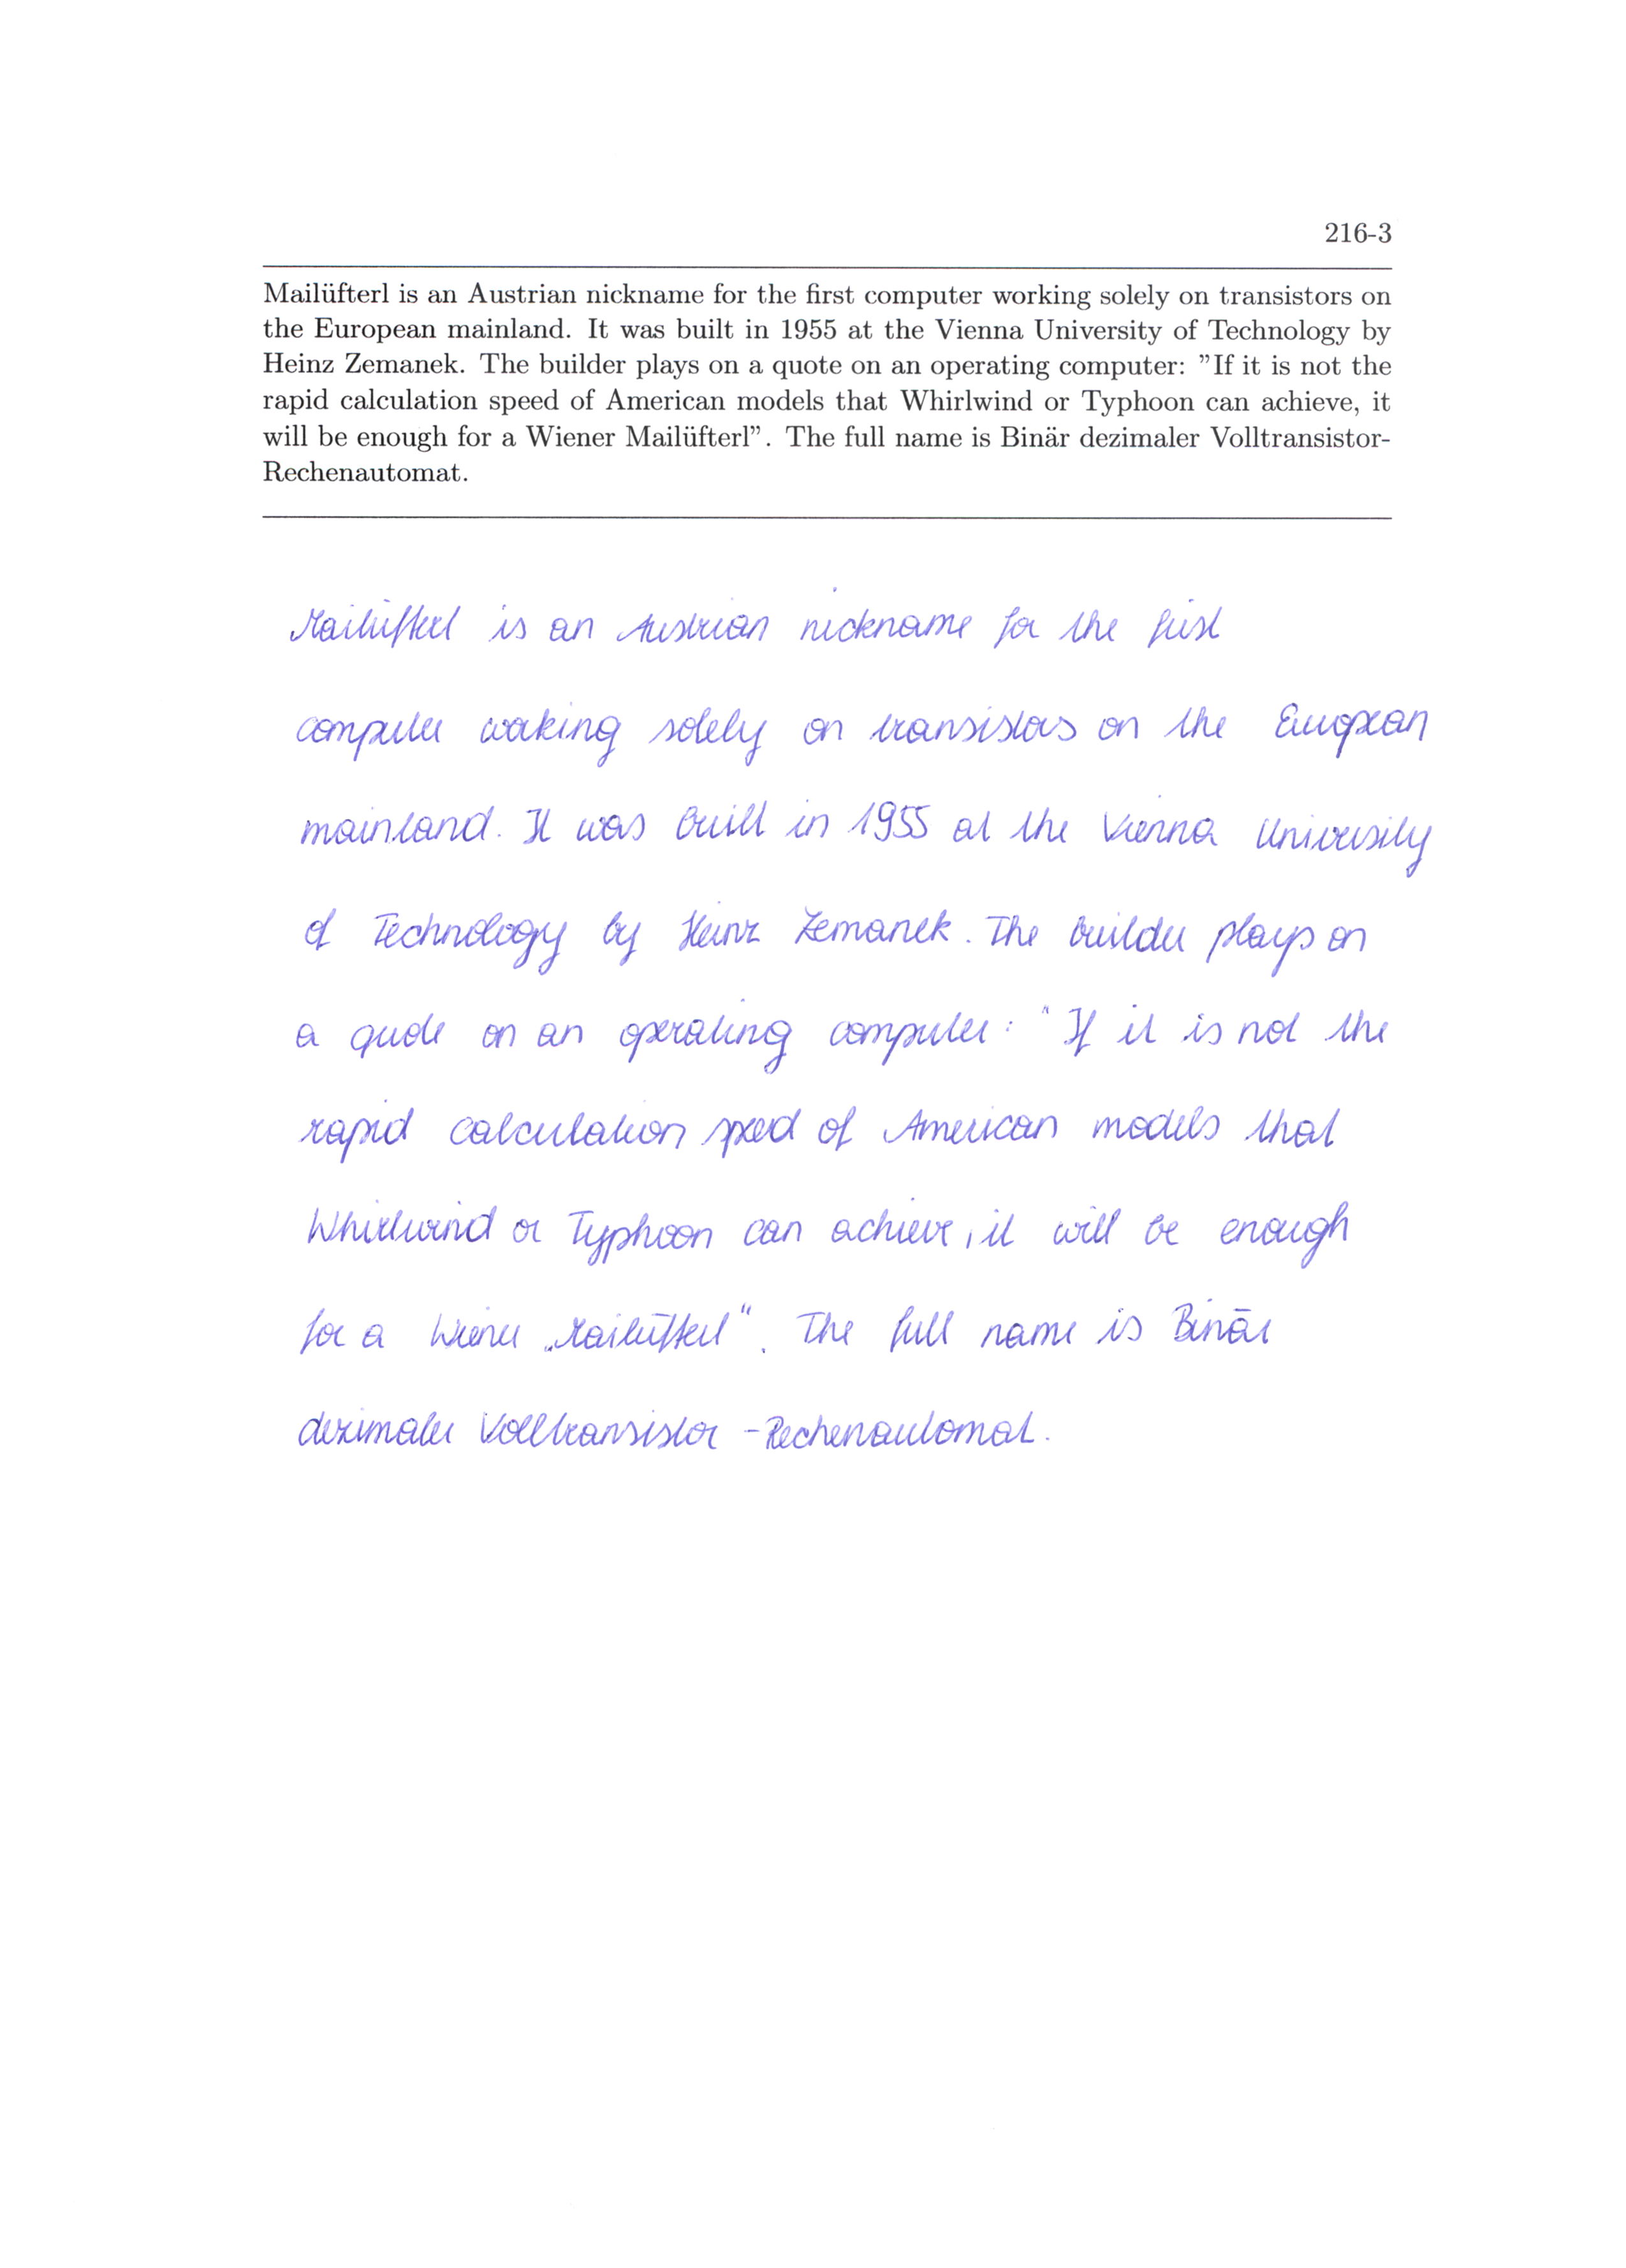 216-3
Mailüfterl is an Austrian nickname for the first computer working solely on transistors on
the European mainland. It was built in 1955 at the Vienna University of Technology by
Heinz Zemanek. The builder plays on a quote on an operating computer: ”If it is not the
rapid calculation speed of American models that Whirlwind or Typhoon can achieve, it
will be enough for a Wiener Mailüfterl”. The full name is Binär dezimaler Volltransistor-
Rechenautomat.
Mailüfterl is an Austrian nickname for the first
computer working solely on transistors on the European
mainland. It was built in 1955 at the Vienna University
of Technology by Heinz Zemanek. The builder plays on
a quote on an operating computer: "If it is not the
rapid calculation speed of American models that
Whirlwind or Typhoon can achieve, it will be enough
for a Wiener „Mailüfterl“. The full name is Binär
dezimaler Volltransistor -Rechenautomat.